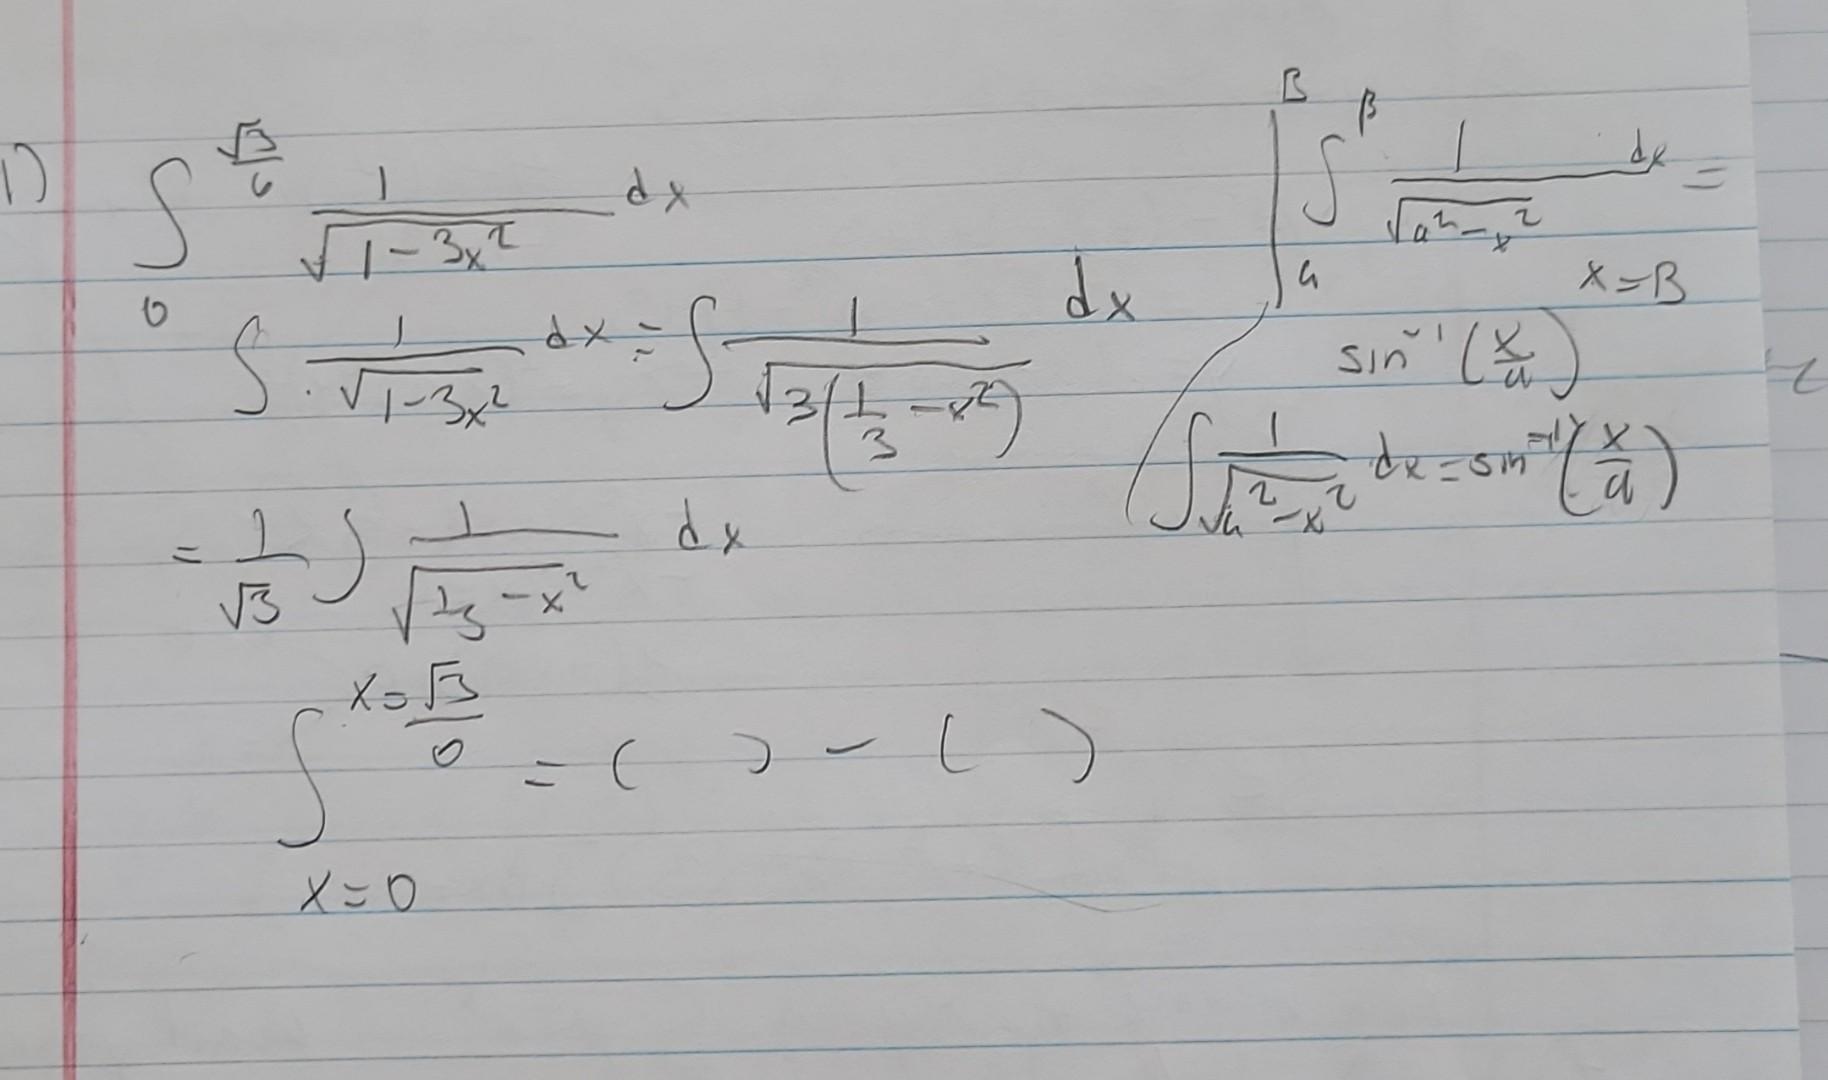 1) ∫₀^(√3/6) 1/√(1-3x²) dx
∫ 1/√(1-3x²) dx = ∫ 1/√(3(1/3 -x²)) dx
= 1/√3 ∫ 1/√(1/3 -x²) dx
∫_(x=0)^(x=√3/0) = ( ) - ( )
B
∫^β 1/√(a²-x²) dx =
a
x=B
sin⁻¹(x/a)
∫ 1/√(a²-x²) dx = sin⁻¹(x/a)